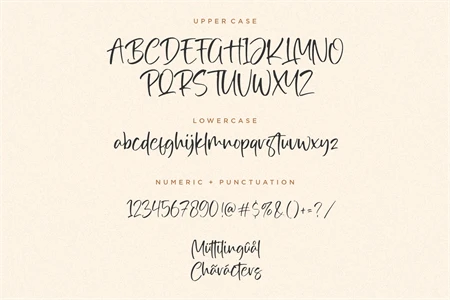 UPPER CASE
ABCDEFGHIJKLMNO
PQRSTUVWXYZ
LOWERCASE
abcdefghijklmnopqrstuvwxyz
NUMERIC + PUNCTUATION
1234567890!@#$%&()+=?/
Mùttilingûâl
Chäráctèrs